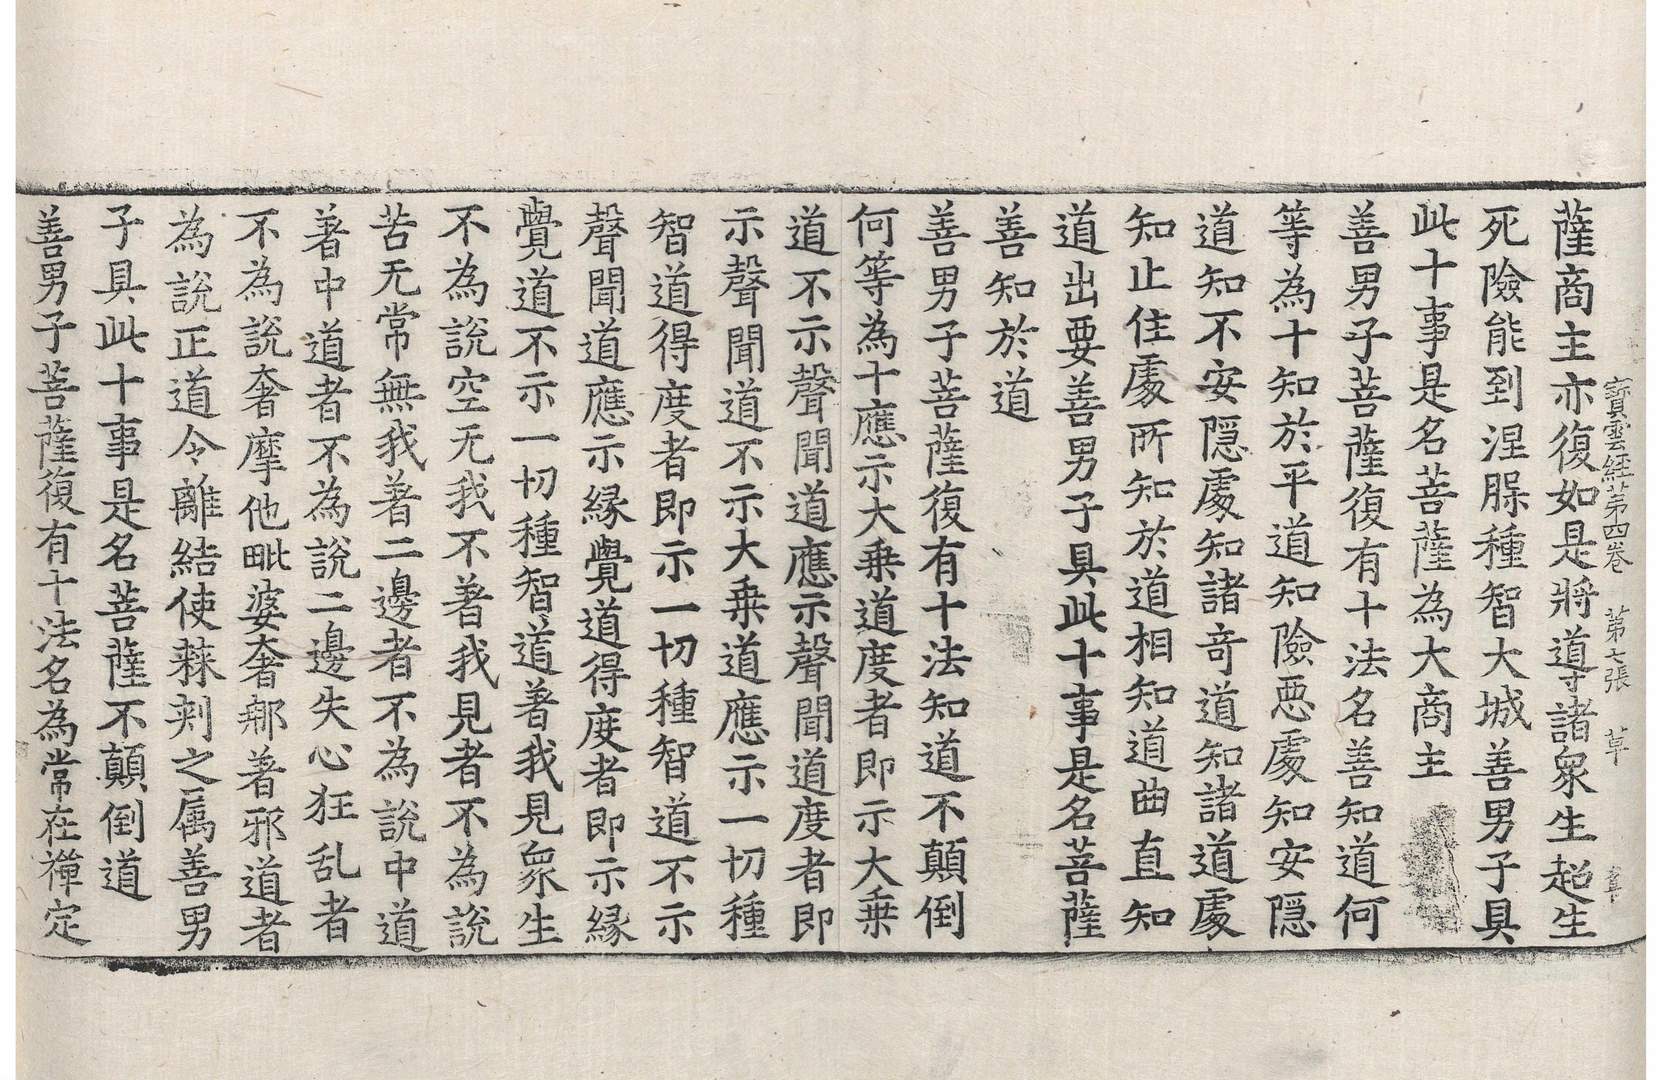 寶雲經第四卷　第七張　草
薩商主亦復如是將導諸衆生超生
死險能到涅脲種智大城善男子具
此十事是名菩薩為大商主
善男子菩薩復有十法名善知道何
等為十知於平道知險惡處知安隱
道知不安隱處知諸奇道知諸道處
知止住處所知於道相知道曲直知
道出要善男子具此十事是名菩薩
善知於道
善男子菩薩復有十法知道不顛倒
何等為十應示大乗道度者即示大乗
道不示聲聞道應示聲聞道度者即
示聲聞道不示大乗道應示一切種
智道得度者即示一切種智道不示
聲聞道應示縁覺道得度者即示縁
覺道不示一切種智道著我見衆生
不為說空无我不著我見者不為說
苦无常無我著二邊者不為說中道
著中道者不為說二邊失心狂乱者
不為說奢摩他毗婆奢那著邪道者
為說正道令離結使棘刺之属善男
子具此十事是名菩薩不顛倒道
善男子菩薩復有十法名為常在禪定